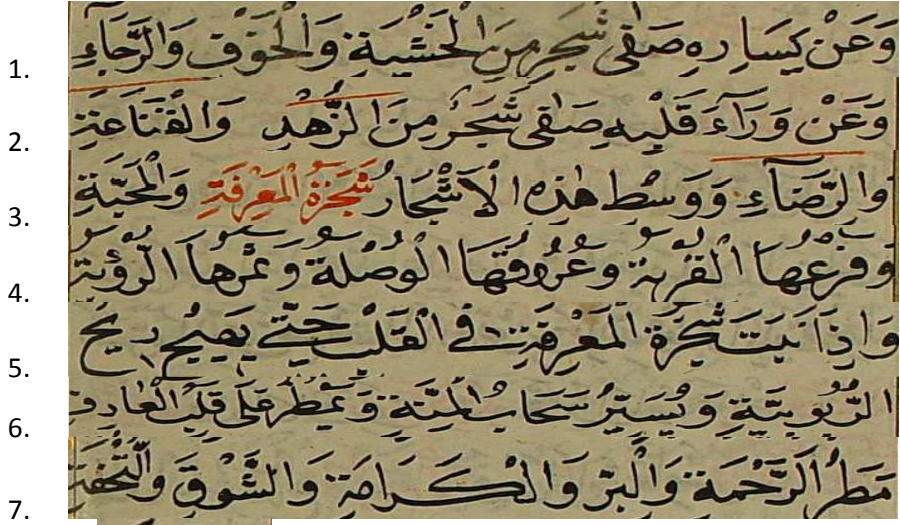 1. وَعَنْ يَسَارِهِ صَفَّى شَجَرٍ مِنَ الْخَشْيَةِ وَالْخَوْفِ وَالرَّجَاءِ
2. وَعَنْ وَرَآءِ قَلْبِهِ صَفَّى شَجَرٍ مِنَ الزُّهْدِ وَالْقَنَاعَةِ
3. وَالرِّضَاءِ وَوَسْطِ هٰذِهِ الْاَشْجَارُ شَجَرَةُ الْمَعْرِفَةِ وَالْمَحَبَّةِ
4. وَفَرْعُهَا الْقُرْبَةُ وَعُرُوقُهَا الْوُصْلَةُ وَثَمَرُهَا الرُّؤْيَةُ
5. وَاِذَا نَبَتَتْ شَجَرَةُ الْمَعْرِفَةِ فِى الْقَلْبِ حَتّٰى يَصِيْحُ رِيْحُ
6. الرُّبُوبِيَّةِ وَيُسَيِّرُ سَحَابُ الْمِنَّةِ وَيَمْطُرُ عَلٰى قَلْبِ الْعَارِفِ
7. مَطَرُ الرَّحْمَةِ وَالْبِرِّ وَالْكَرَامَةِ وَالشَّوْقِ وَالتُّحْفَةِ